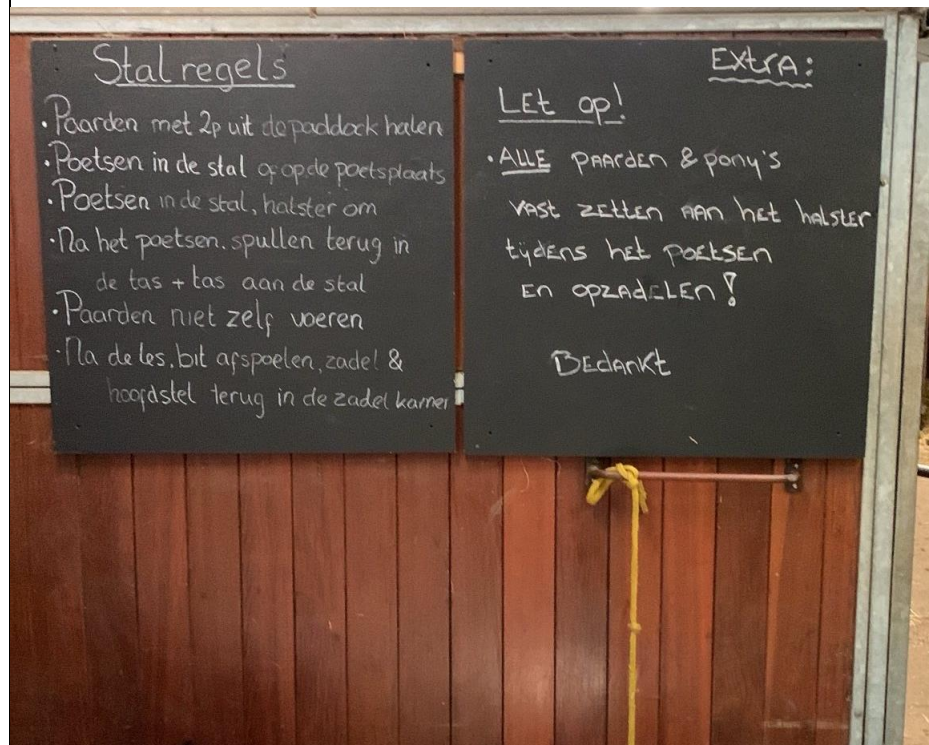 Stal regels
• Paarden met 2p uit de paddock halen
• Poetsen in de stal of op de poetsplaats
• Poetsen in de stal, halster om
• Na het poetsen. spullen terug in
de tas + tas aan de stal
• Paarden niet zelf voeren
• Na de les, bit afspoelen, zadel &
hoofdstel terug in de zadel kamer
Extra:
Let op!
• ALLE paarden & pony's
vast zetten aan het halster
tijdens het poetsen
en opzadelen!
Bedankt